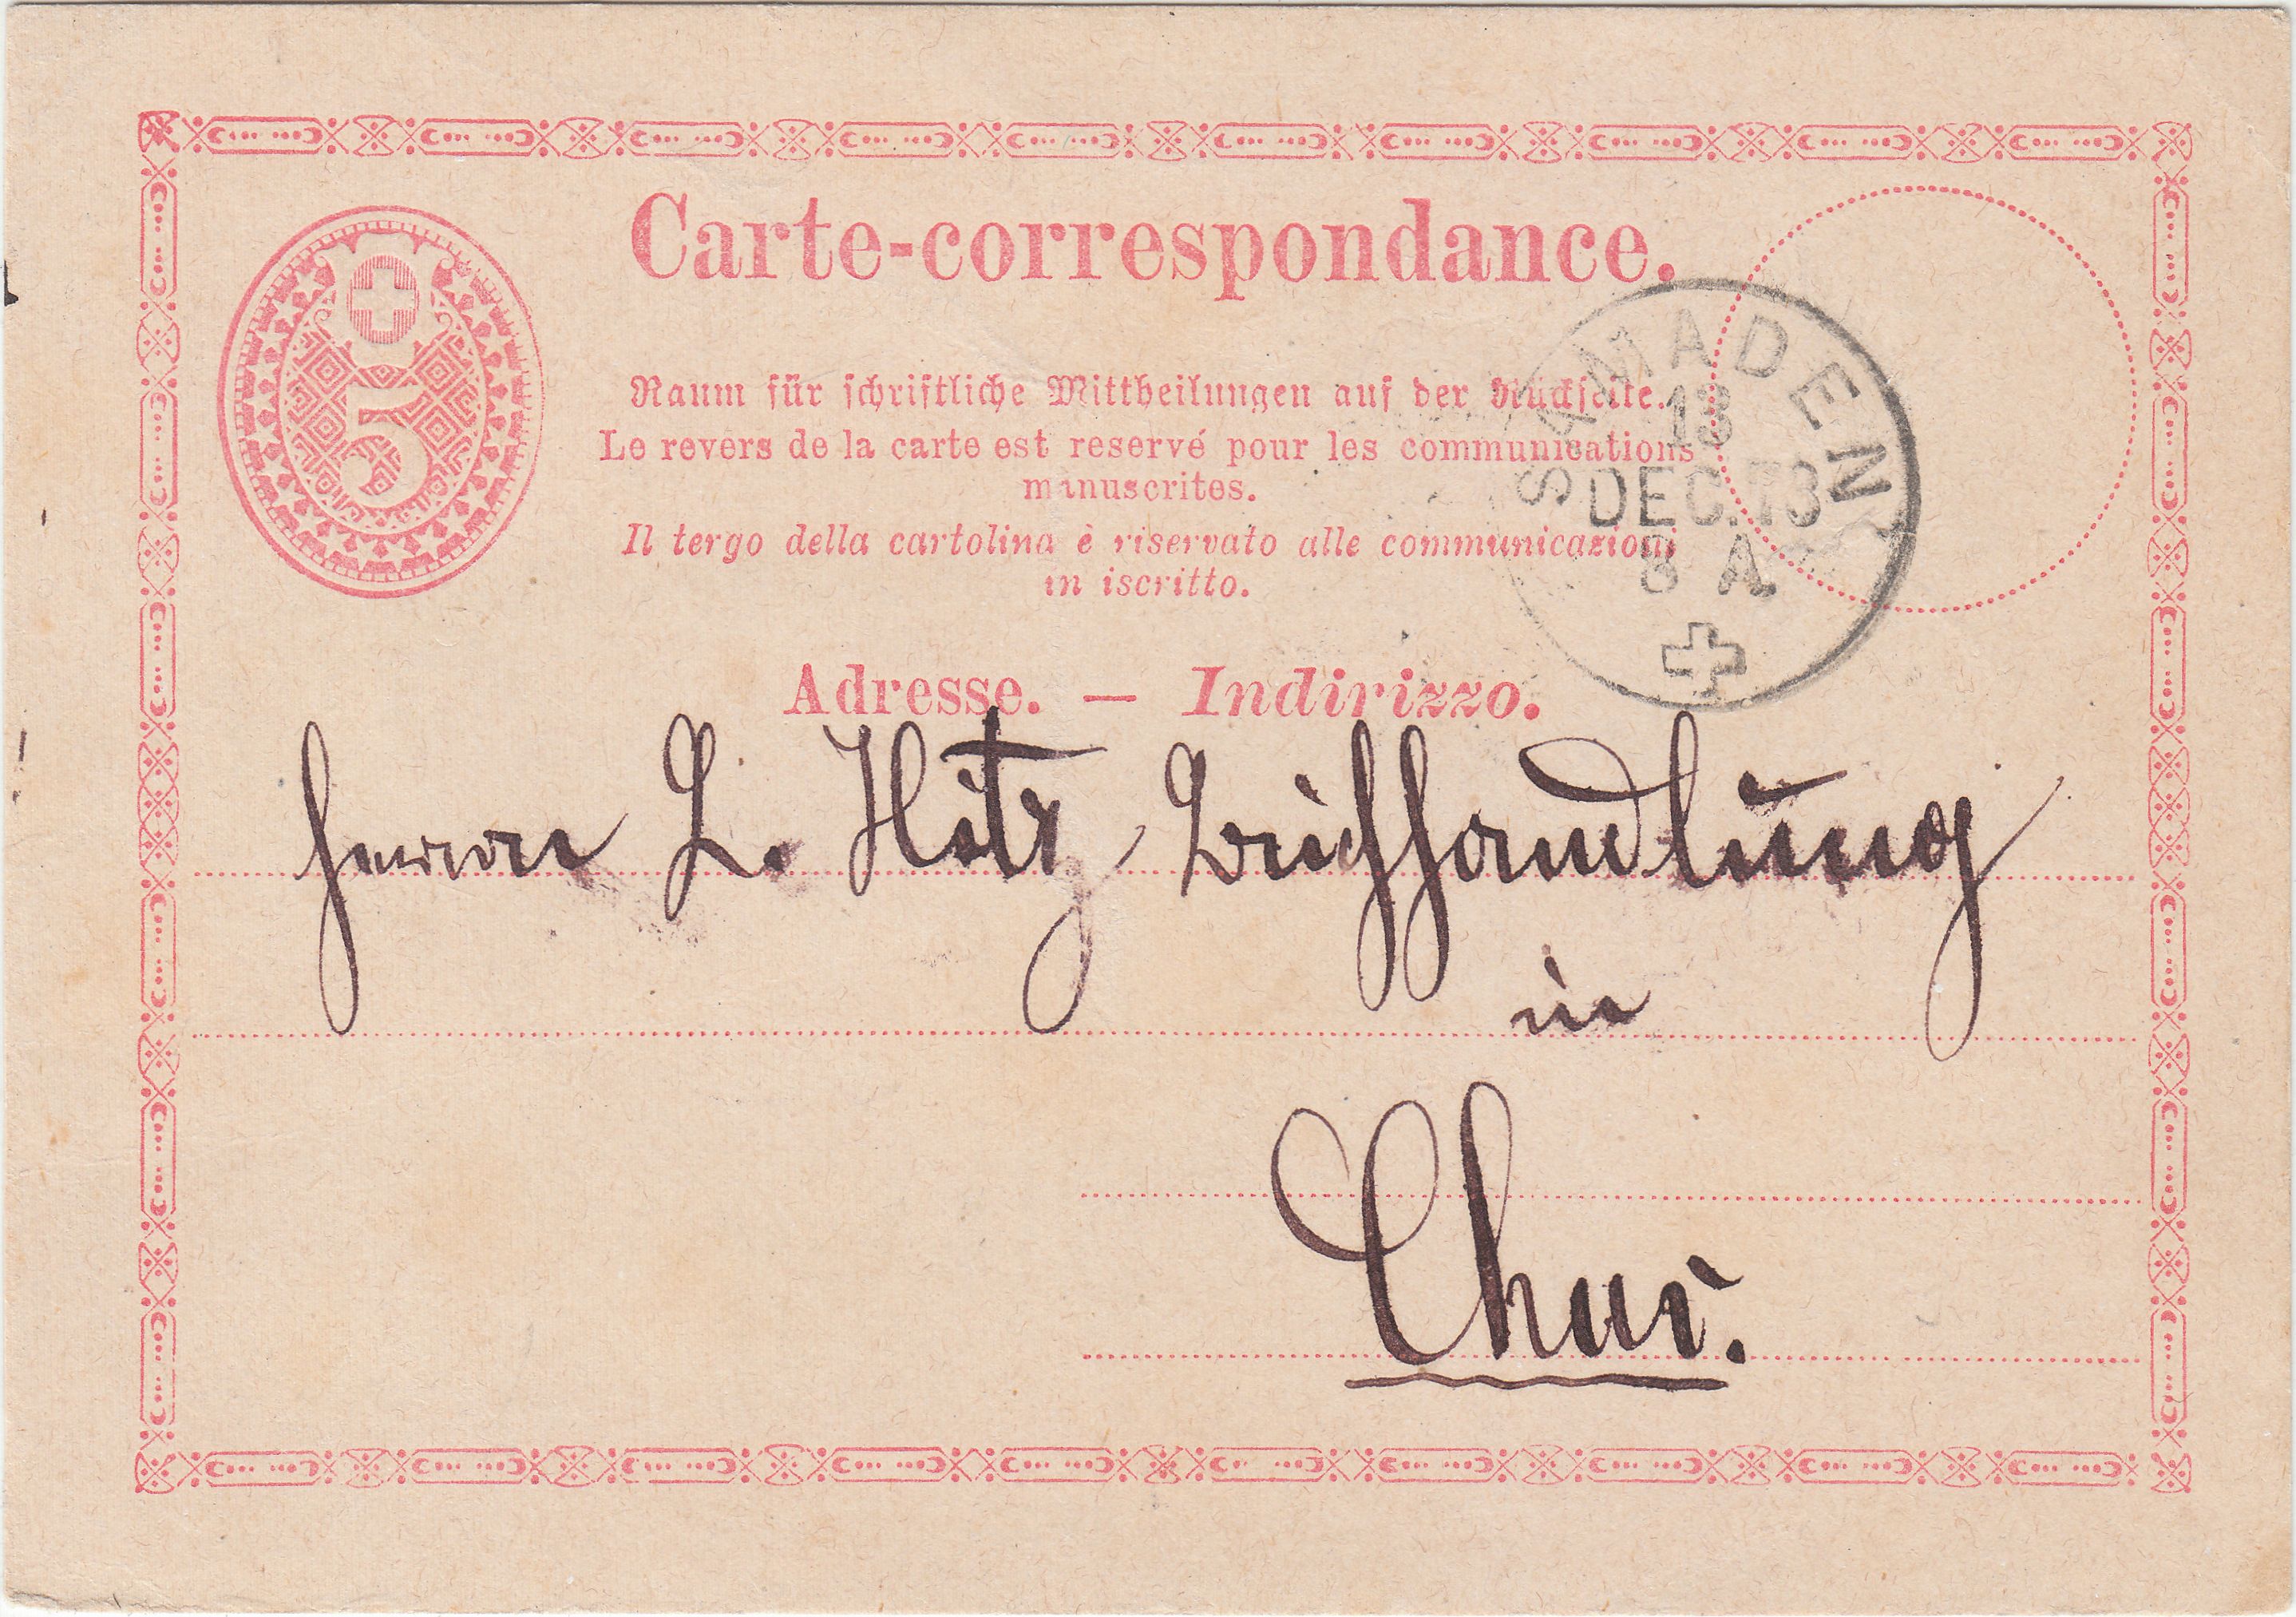 Carte-correspondance.
5
Raum für schriftliche Mittheilungen auf der Rückseite.
Le revers de la carte est reservé pour les communications
manuscrites.
Il tergo della cartolina è riservato alle communicazioni
in iscritto.
SAMADEN
13
DEC.73
8 A.
Adresse. — Indirizzo.
Herrn L. Hitz, Buchhandlung
in
Chur.